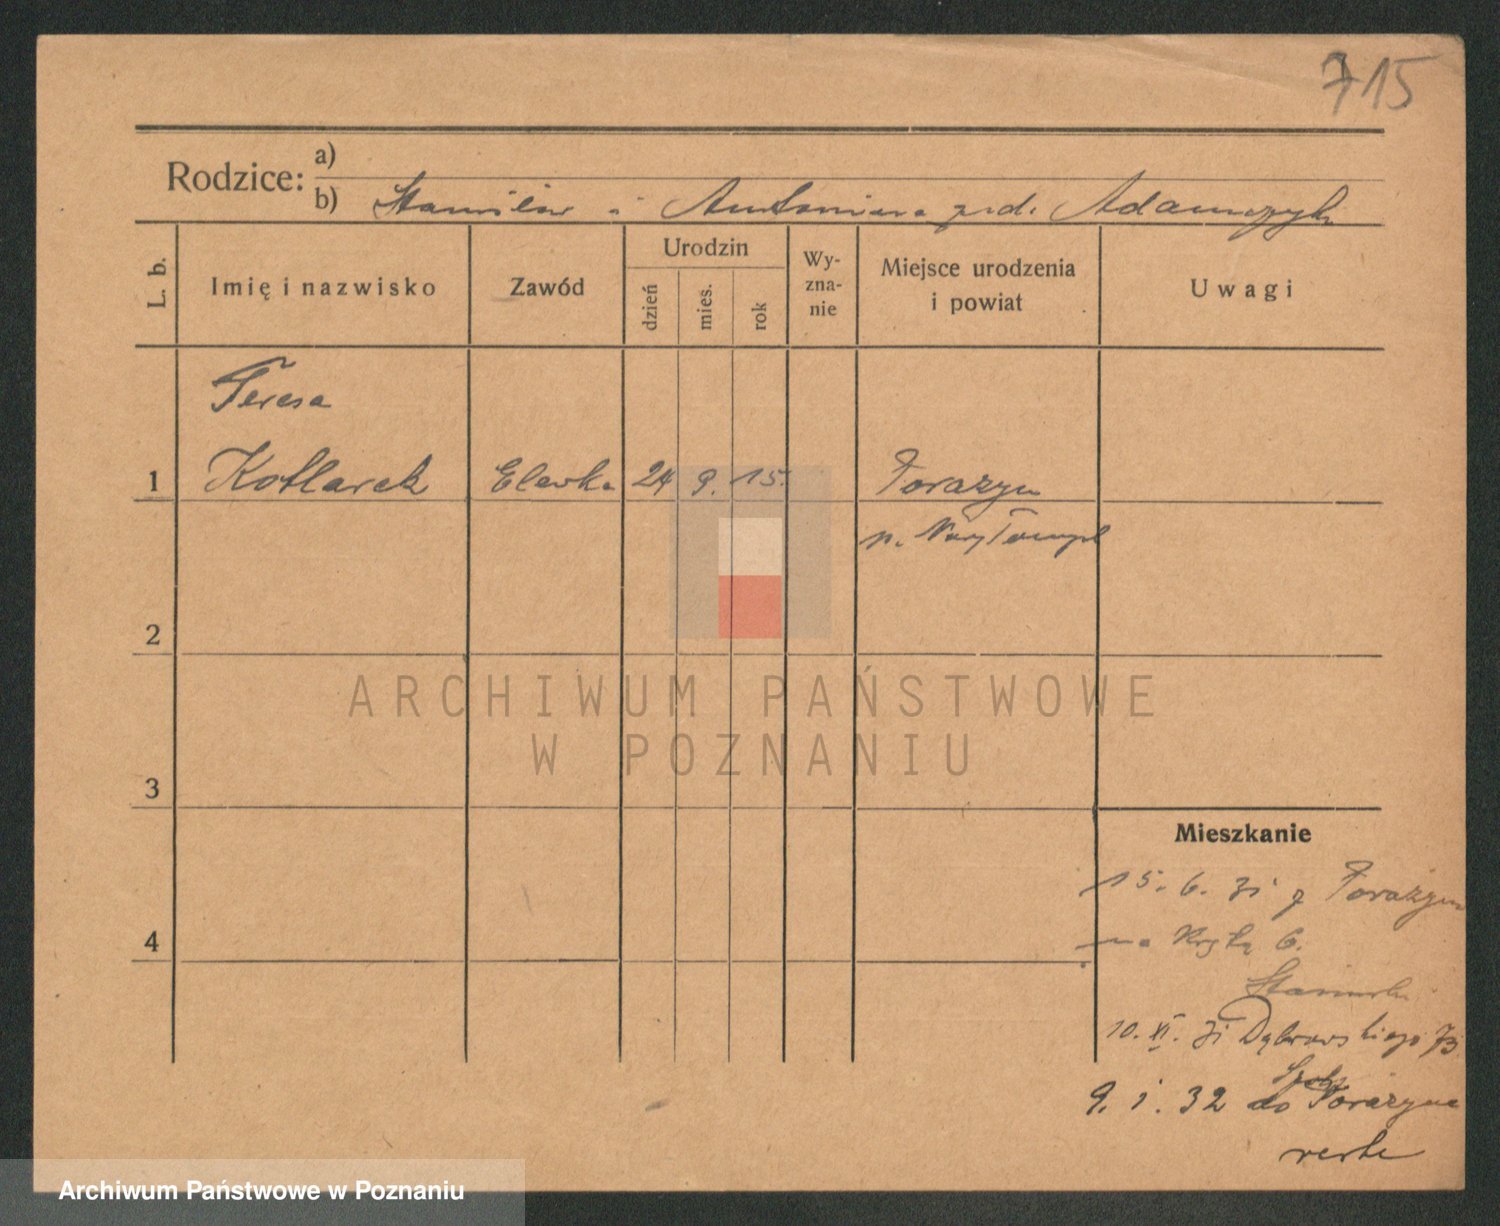 715
Rodzice: a)
b) Stanisław i Antonina zd. Adamczyk
L. b.
Imię i nazwisko
Zawód
Urodzin
dzień
mies.
rok
Wy-
zna-
nie
Miejsce urodzenia
i powiat
Uwagi
Teresa
1 Kotlarek 24 9. 15. Torazyn
p. Nowy Tomyśl
2
ARCHIWUM PAŃSTWOWE
W POZNANIU
3
Mieszkanie
15. 6. 31 z Torazyn
na 6.
4
10. XI. 31 Dąbrowskiego
9. 1. 32 do Torazyna
Archiwum Państwowe w Poznaniu